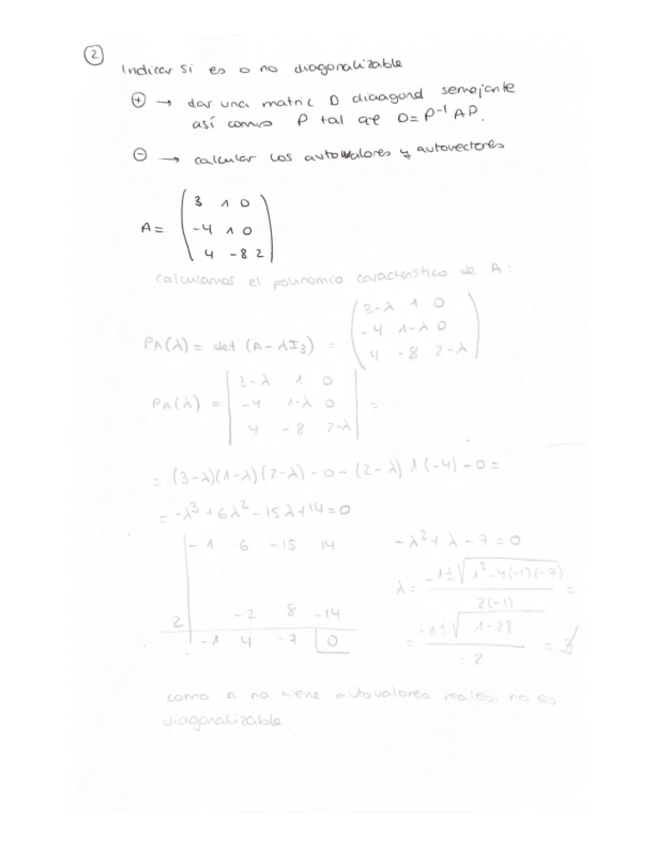 2
Indicar si es o no diagonalizable
⊕ → dar una matriz D diaagonal semejante
así como P tal que D = P⁻¹ A P.
⊖ → calcular los autovalores y autovectores
A = ( 3 1 0
-4 1 0
4 -8 2 )
calculamos el polinomio característico de A:
PA(λ) = det (A - λI₃) = ( 3-λ 1 0
-4 1-λ 0
4 -8 2-λ )
PA(λ) = | 3-λ 1 0
-4 1-λ 0
4 -8 2-λ | =
= (3-λ)(1-λ)(2-λ) - 0 - (2-λ) 1 (-4) - 0 =
= -λ³ + 6λ² - 15λ + 14 = 0
-1 6 -15 14
2 -2 8 -14
-1 4 -7 0
-λ² + λ - 7 = 0
λ = (-1 ± √(1² - 4(-1)(-7))) / 2(-1) =
= (-1 ± √(1 - 28)) / -2 = ∄
como A no tiene autovalores reales, no es
diagonalizable.